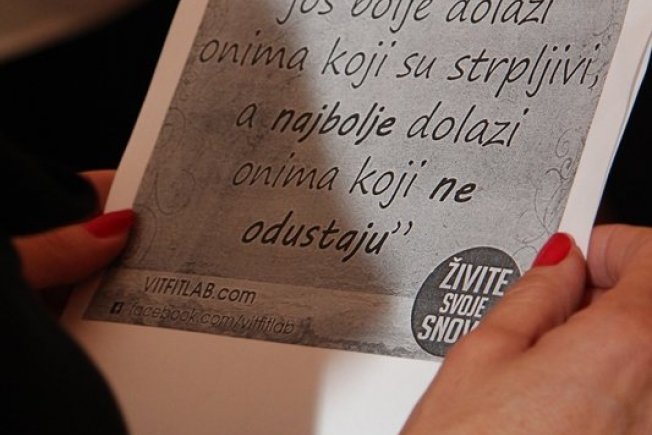 još bolje dolazi
onima koji su strpljivi,
a najbolje dolazi
onima koji ne
odustaju”
VITFITLAB.com
facebook.com/vitfitlab
ŽIVITE
SVOJE